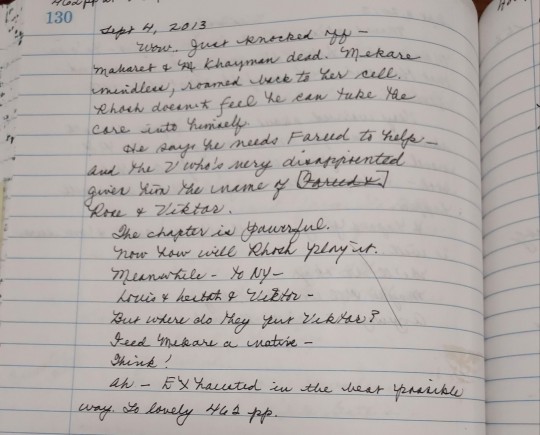 130
Sept 4, 2013
Wow. Just knocked off —
Maharet & Khayman dead. Mekare
mindless, roamed back to her cell.
Rhosh doesn't feel he can take the
core into himself.
He says he needs Fareed to help —
and the V who's very disappointed
gives him the name of [Fareed &]
Rose & Viktor.
The chapter is powerful.
Now how will Rhosh play it.
Meanwhile — to NY —
Louis & Lestat & Viktor —
But where do they put Viktor?
Feed Mekare a native —
Think!
Ah — EXhausted in the best possible
way. So lovely 462 pp.